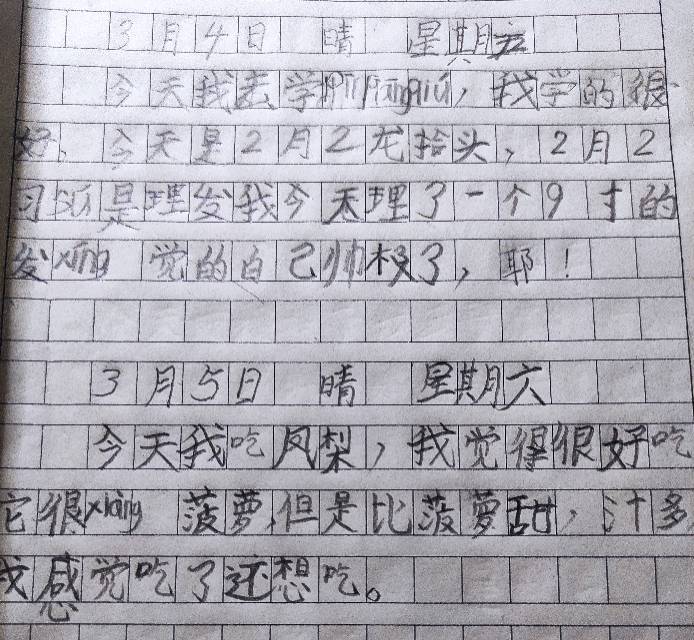 3月4日 晴 星期五
今天我去学pīngpāngqiú，我学的很
好、今天是2月2龙抬头，2月2
习sú是理发我今天理了一个9寸的
发xíng 觉的自己帅极了，耶！
3月5日 晴 星期六
今天我吃凤梨，我觉得很好吃
它很xiàng菠萝，但是比菠萝甜，汁多
我感觉吃了还想吃。